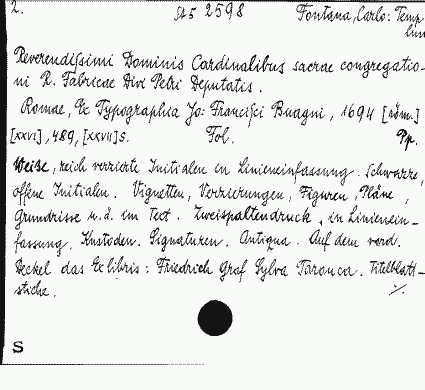 2. St 5 2598 Fontana, Carlo: Temp
lum
Reverendissimi Dominis Cardinalibus sacrae congregatio-
ni R. Fabricae Divi Petri Deputatis.
Romae, Ex Typographia Jo: Francisci Buagni, 1694 [röm.]
[XXVI], 489, [XXVII] S. Fol. Pp.
Weise, reich verzierte Initialen in Linieneinfassung. Schwarze,
offene Initialen. Vignetten, Verzierungen, Figuren, Pläne,
Grundrisse u. ä. im Text. Zweispaltendruck, in Linienein-
fassung. Kustoden. Signaturen. Antiqua. Auf dem vord.
Deckel das Exlibris: Friedrich Graf Sylva Tarouca. Titelblatt-
stiche. ./.
S